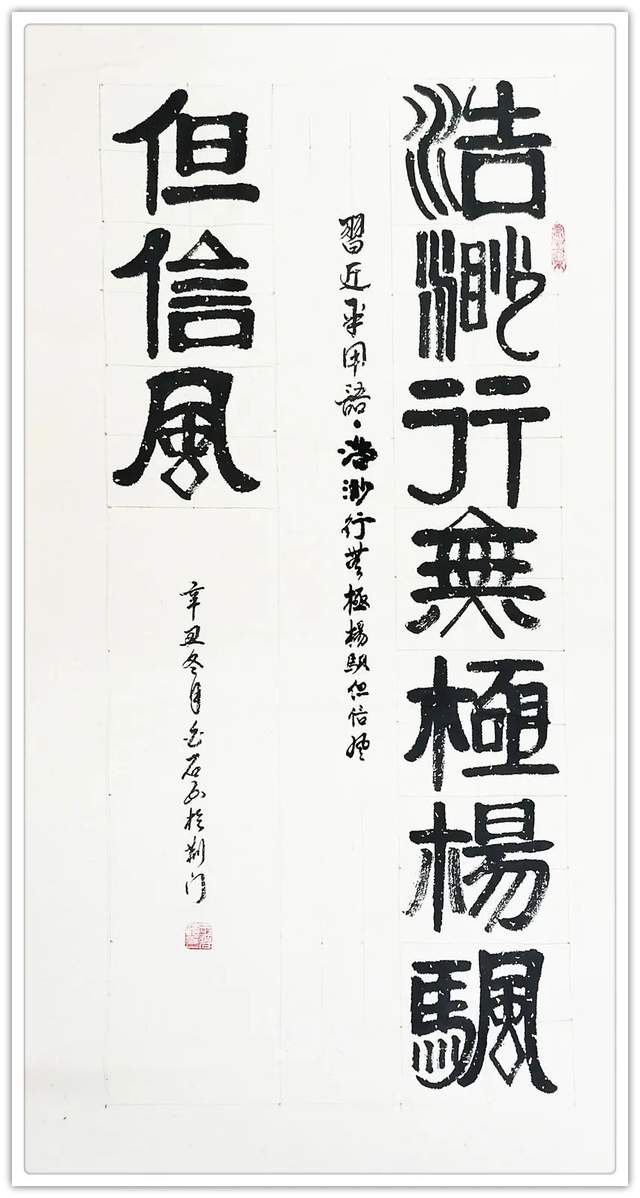 浩渺行無極楊颿
習近平用語·浩渺行無極楊颿但信風
但信風
辛丑冬月石书於荆门